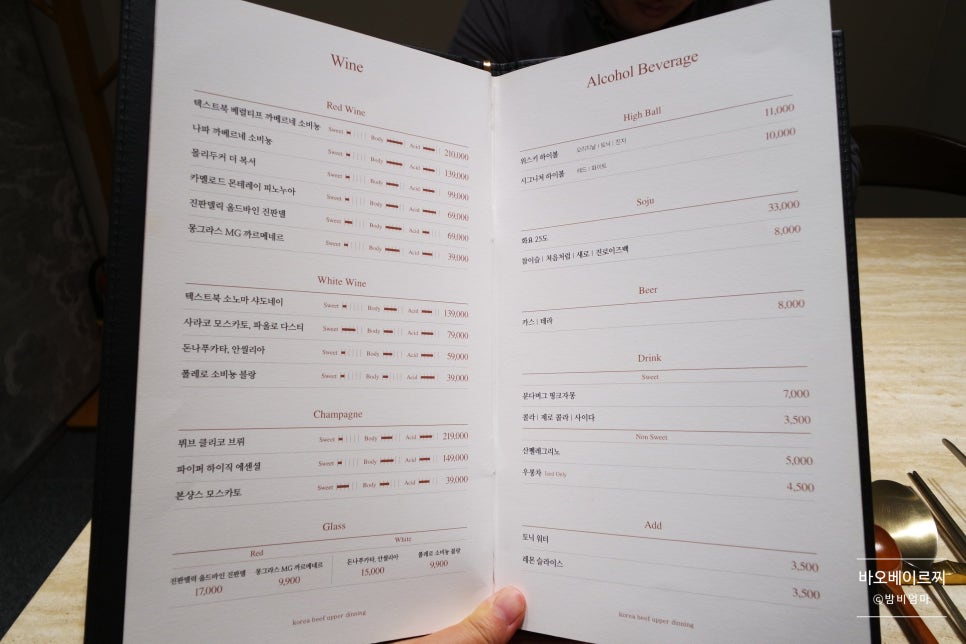 Wine
Red Wine
텍스트북 베럴티프 까베르네 소비뇽 Sweet Body Acid 210,000
나파 까베르네 소비뇽 Sweet Body Acid 139,000
몰리두커 더 복서 Sweet Body Acid 99,000
카멜로드 몬테레이 피노누아 Sweet Body Acid 69,000
진판델릭 올드바인 진판델 Sweet Body Acid 69,000
몽그라스 MG 까르메네르 Sweet Body Acid 39,000
White Wine
텍스트북 소노마 샤도네이 Sweet Body Acid 139,000
사라코 모스카토, 파올로 다스티 Sweet Body Acid 79,000
돈나푸카타, 안씰리아 Sweet Body Acid 59,000
폴레로 소비뇽 블랑 Sweet Body Acid 39,000
Champagne
뵈브 클리코 브뤼 Sweet Body Acid 219,000
파이퍼 하이직 에센셜 Sweet Body Acid 149,000
본상스 모스카토 Sweet Body Acid 39,000
Glass
Red White
진판델릭 올드바인 진판델 몽그라스 MG 까르메네르 돈나푸카타, 안씰리아 폴레로 소비뇽 블랑
17,000 9,900 15,000 9,900
korea beef upper dinning
Alcohol Beverage
High Ball
위스키 하이볼 오리지널 | 토닉 | 진저 11,000
시그니처 하이볼 레드 | 화이트 10,000
Soju
화요 25도 33,000
참이슬 | 처음처럼 | 새로 | 진로이즈백 8,000
Beer
카스 | 테라 8,000
Drink
Sweet
분다버그 핑크자몽 7,000
콜라 | 제로 콜라 | 사이다 3,500
Non Sweet
산펠레그리노 5,000
우롱차 Iced Only 4,500
Add
토닉 워터 3,500
레몬 슬라이스 3,500
korea beef upper dinning
바오베이르찌
©밤비엄마